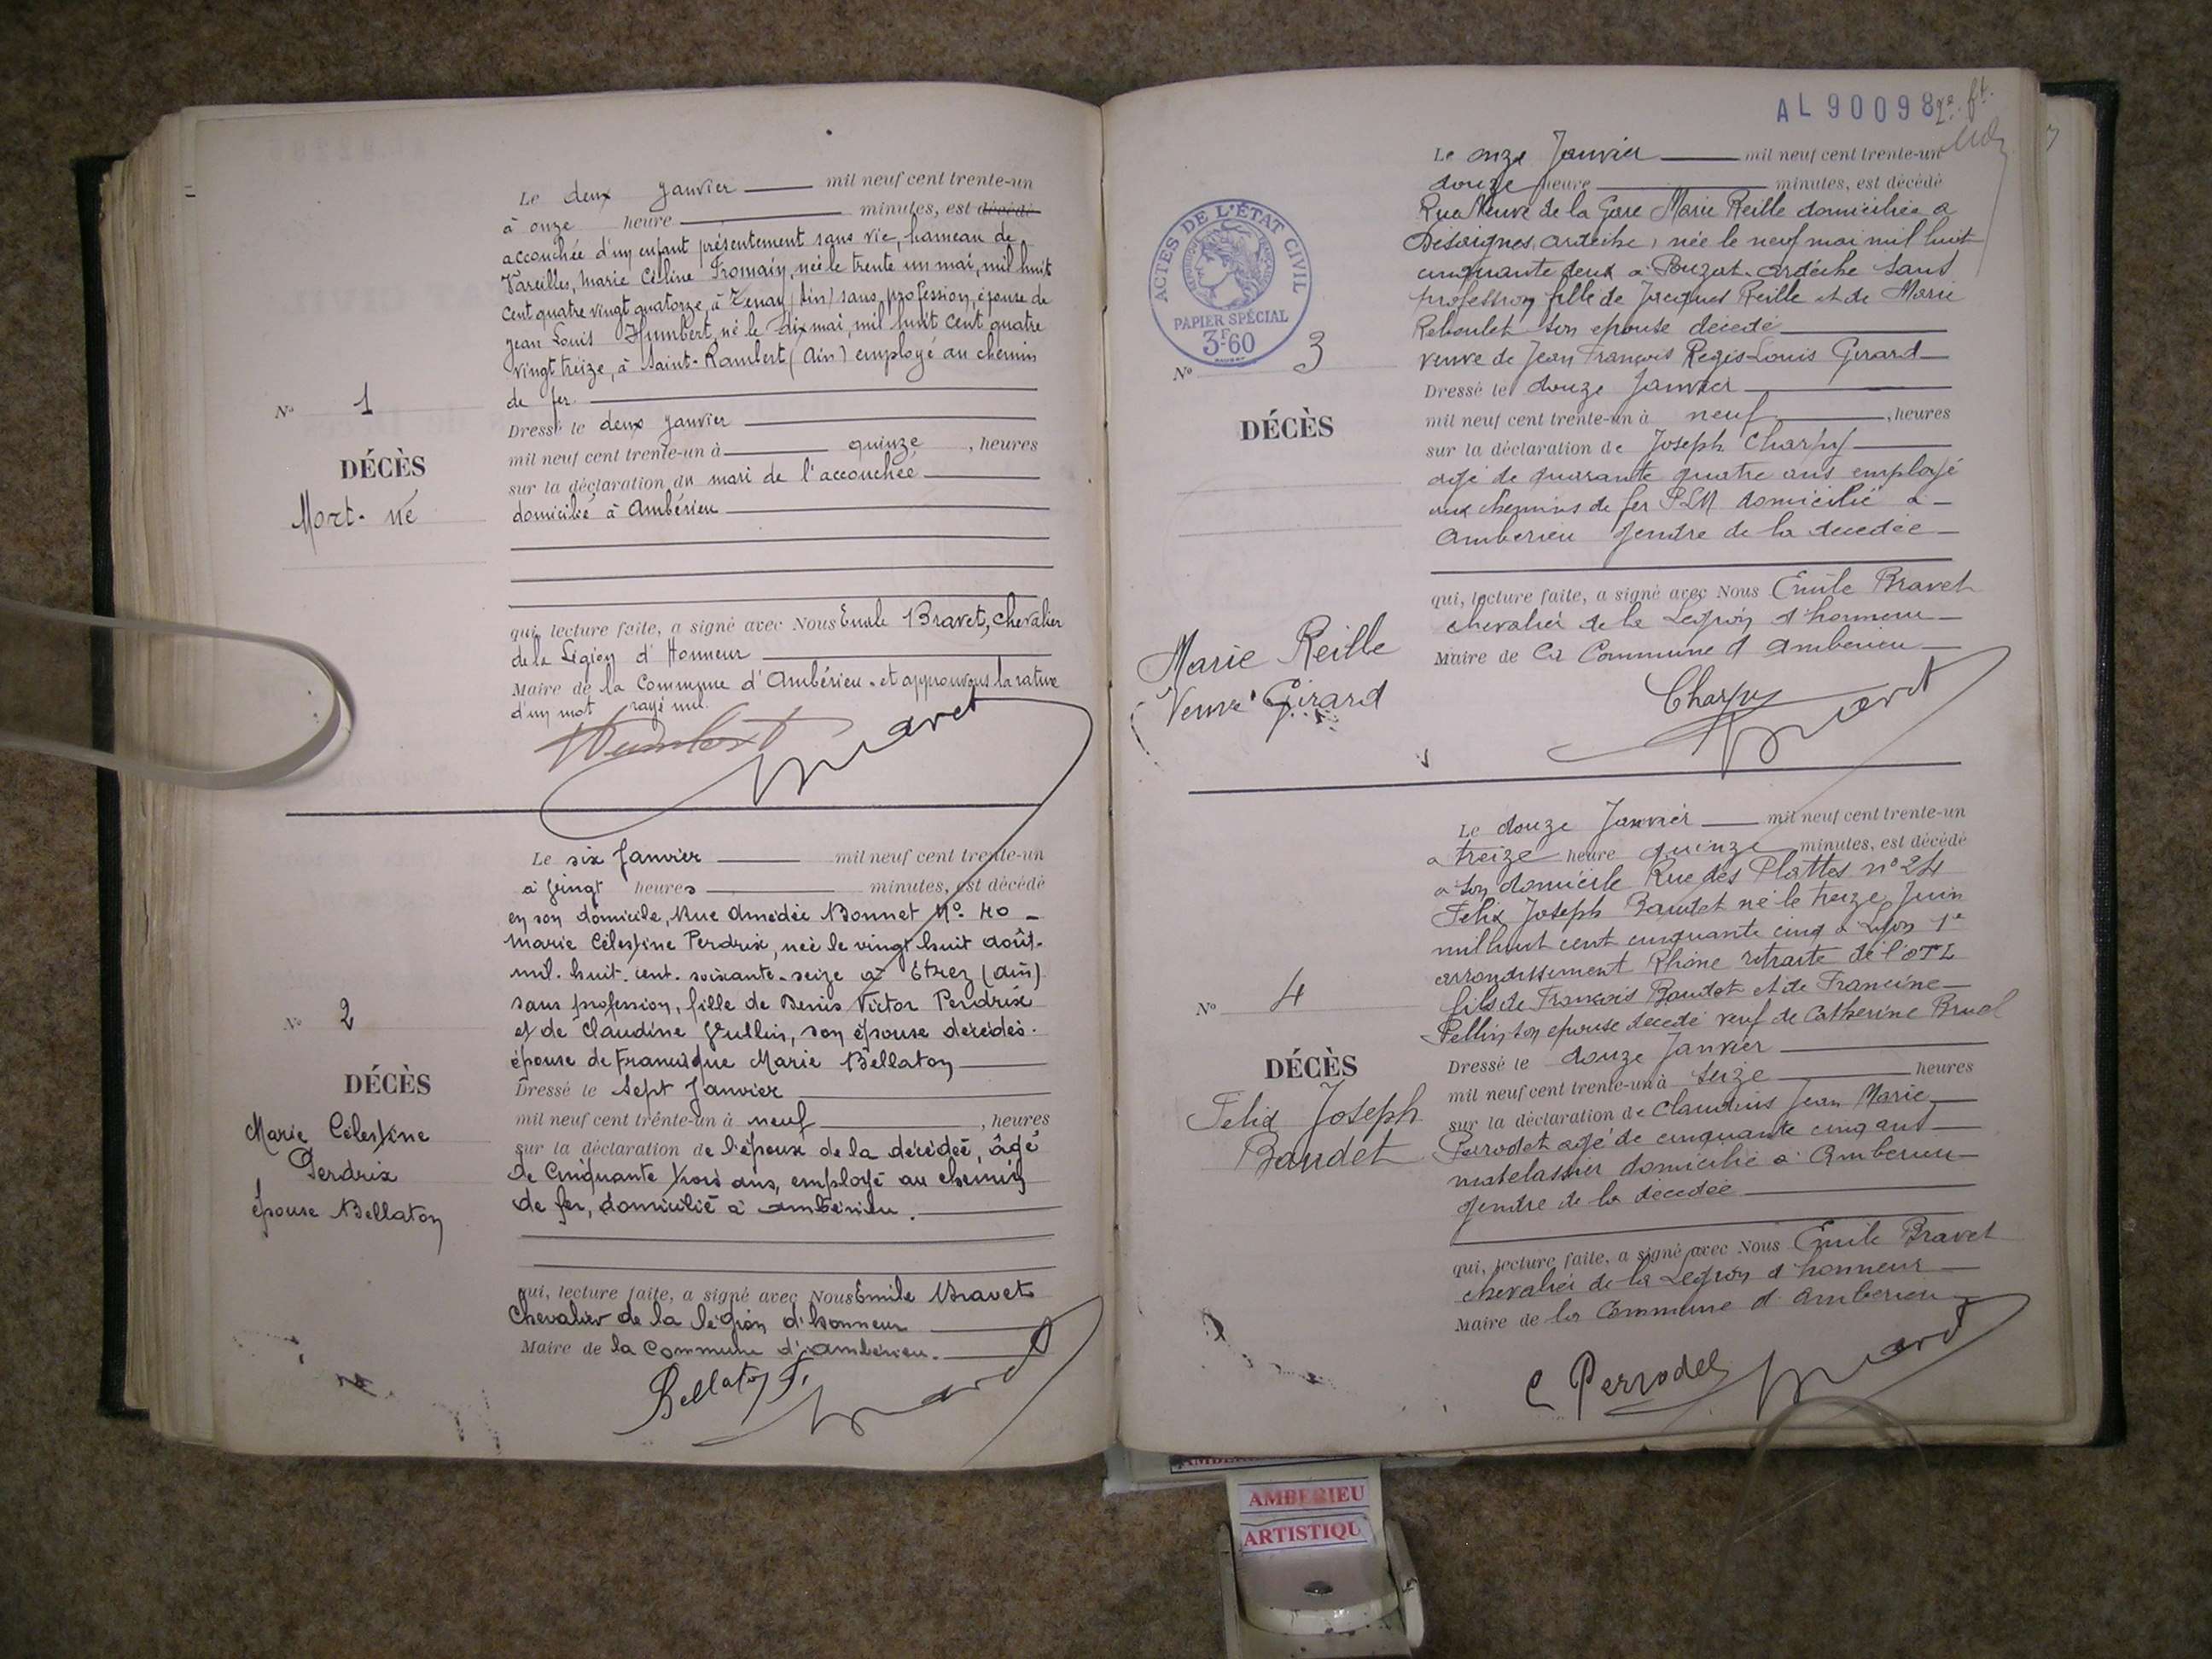 Le deux Janvier mil neuf cent trente-un
à onze heure minutes, est décédé
accouchée d'un enfant présentement sans vie, hameau de
Vareilles, Marie Céline Fromain, née le trente un mai, mil huit
cent quatre vingt quatorze, à Tenay (Ain) sans profession, épouse de
Jean Louis Humbert, né le dix mai, mil huit cent quatre
vingt treize, à Saint-Rambert (Ain) employé au chemin
de fer.
Dressé le deux Janvier
mil neuf cent trente-un à quinze, heures
sur la déclaration du mari de l'accouchée
domicilié à Ambérieu
qui, lecture faite, a signé avec Nous Emile Bravet, chevalier
de la Légion d'Honneur
Maire de la Commune d'Ambérieu. et approuvons la rature
d'un mot rayé nul.
Humbert Bravet
N° 1
DÉCÈS
Mort-né
Le six Janvier mil neuf cent trente-un
à vingt heures minutes, est décédé
en son domicile, Rue Amédée Bonnet N° 40
Marie Célestine Perdrix, née le vingt huit août
mil. huit. cent. soixante. seize à Etrez (ain)
sans profession, fille de Denis Victor Perdrix
et de Claudine Vullin, son épouse décédés.
épouse de Francisque Marie Bellaton
Dressé le Sept Janvier
mil neuf cent trente-un à neuf, heures
sur la déclaration de l'époux de la décédée, âgé
de Cinquante trois ans, employé au chemin
de fer, domicilié à ambérieu.
qui, lecture faite, a signé avec Nous Emile Bravet
Chevalier de la légion d'honneur
Maire de la Commune d'ambérieu.
Bellaton F. Bravet
N° 2
DÉCÈS
Marie Célestine
Perdrix
épouse Bellaton
AL 90098
2e ft.
ACTES DE L'ÉTAT CIVIL
PAPIER SPÉCIAL
3F60
Le onze Janvier mil neuf cent trente-un
douze heure minutes, est décédé
Rue Neuve de la Gare Marie Reille domiciliée a
Desaignes, ardèche, née le neuf mai mil huit
cinquante deux a Bouzat ardèche sans
profession fille de Jacques Reille et de Marie
Reboulet son epouse décédé
veuve de Jean François Regis Louis Girard
Dressé le douze Janvier
mil neuf cent trente-un à neuf, heures
sur la déclaration de Joseph Charpy
agé de quarante quatre ans employé
aux chemins de fer PLM domicilié a
Amberieu gendre de la decedée
qui, lecture faite, a signé avec Nous Emile Bravet
chevalier de la Legion d'honneur
Maire de La Commune d Amberieu
Charpy Bravet
N° 3
DÉCÈS
Marie Reille
Veuve Girard
Le douze Janvier mil neuf cent trente-un
a treize heure quinze minutes, est décédé
a son domicile Rue des Plattes n° 24
Felix Joseph Baudet né le treize Juin
mil huit cent cinquante cinq a Lyon 1e
arrondissement Rhône retraité de l'OTL
fils de François Baudet et de Francine
Pellin son epouse decedé veuf de Catherine Bruel
Dressé le douze Janvier
mil neuf cent trente-un à seize heures
sur la déclaration de Claudius Jean Marie
Perrodet agé de cinquante cinq ans
matelassier domicilié a Amberieu
gendre de la decedée
qui, lecture faite, a signé avec Nous Emile Bravet
chevalier de la Legion d'honneur
Maire de la Commune d Amberieu
C Perrodet Bravet
N° 4
DÉCÈS
Felix Joseph
Baudet
AMBERIEU
ARTISTIQU